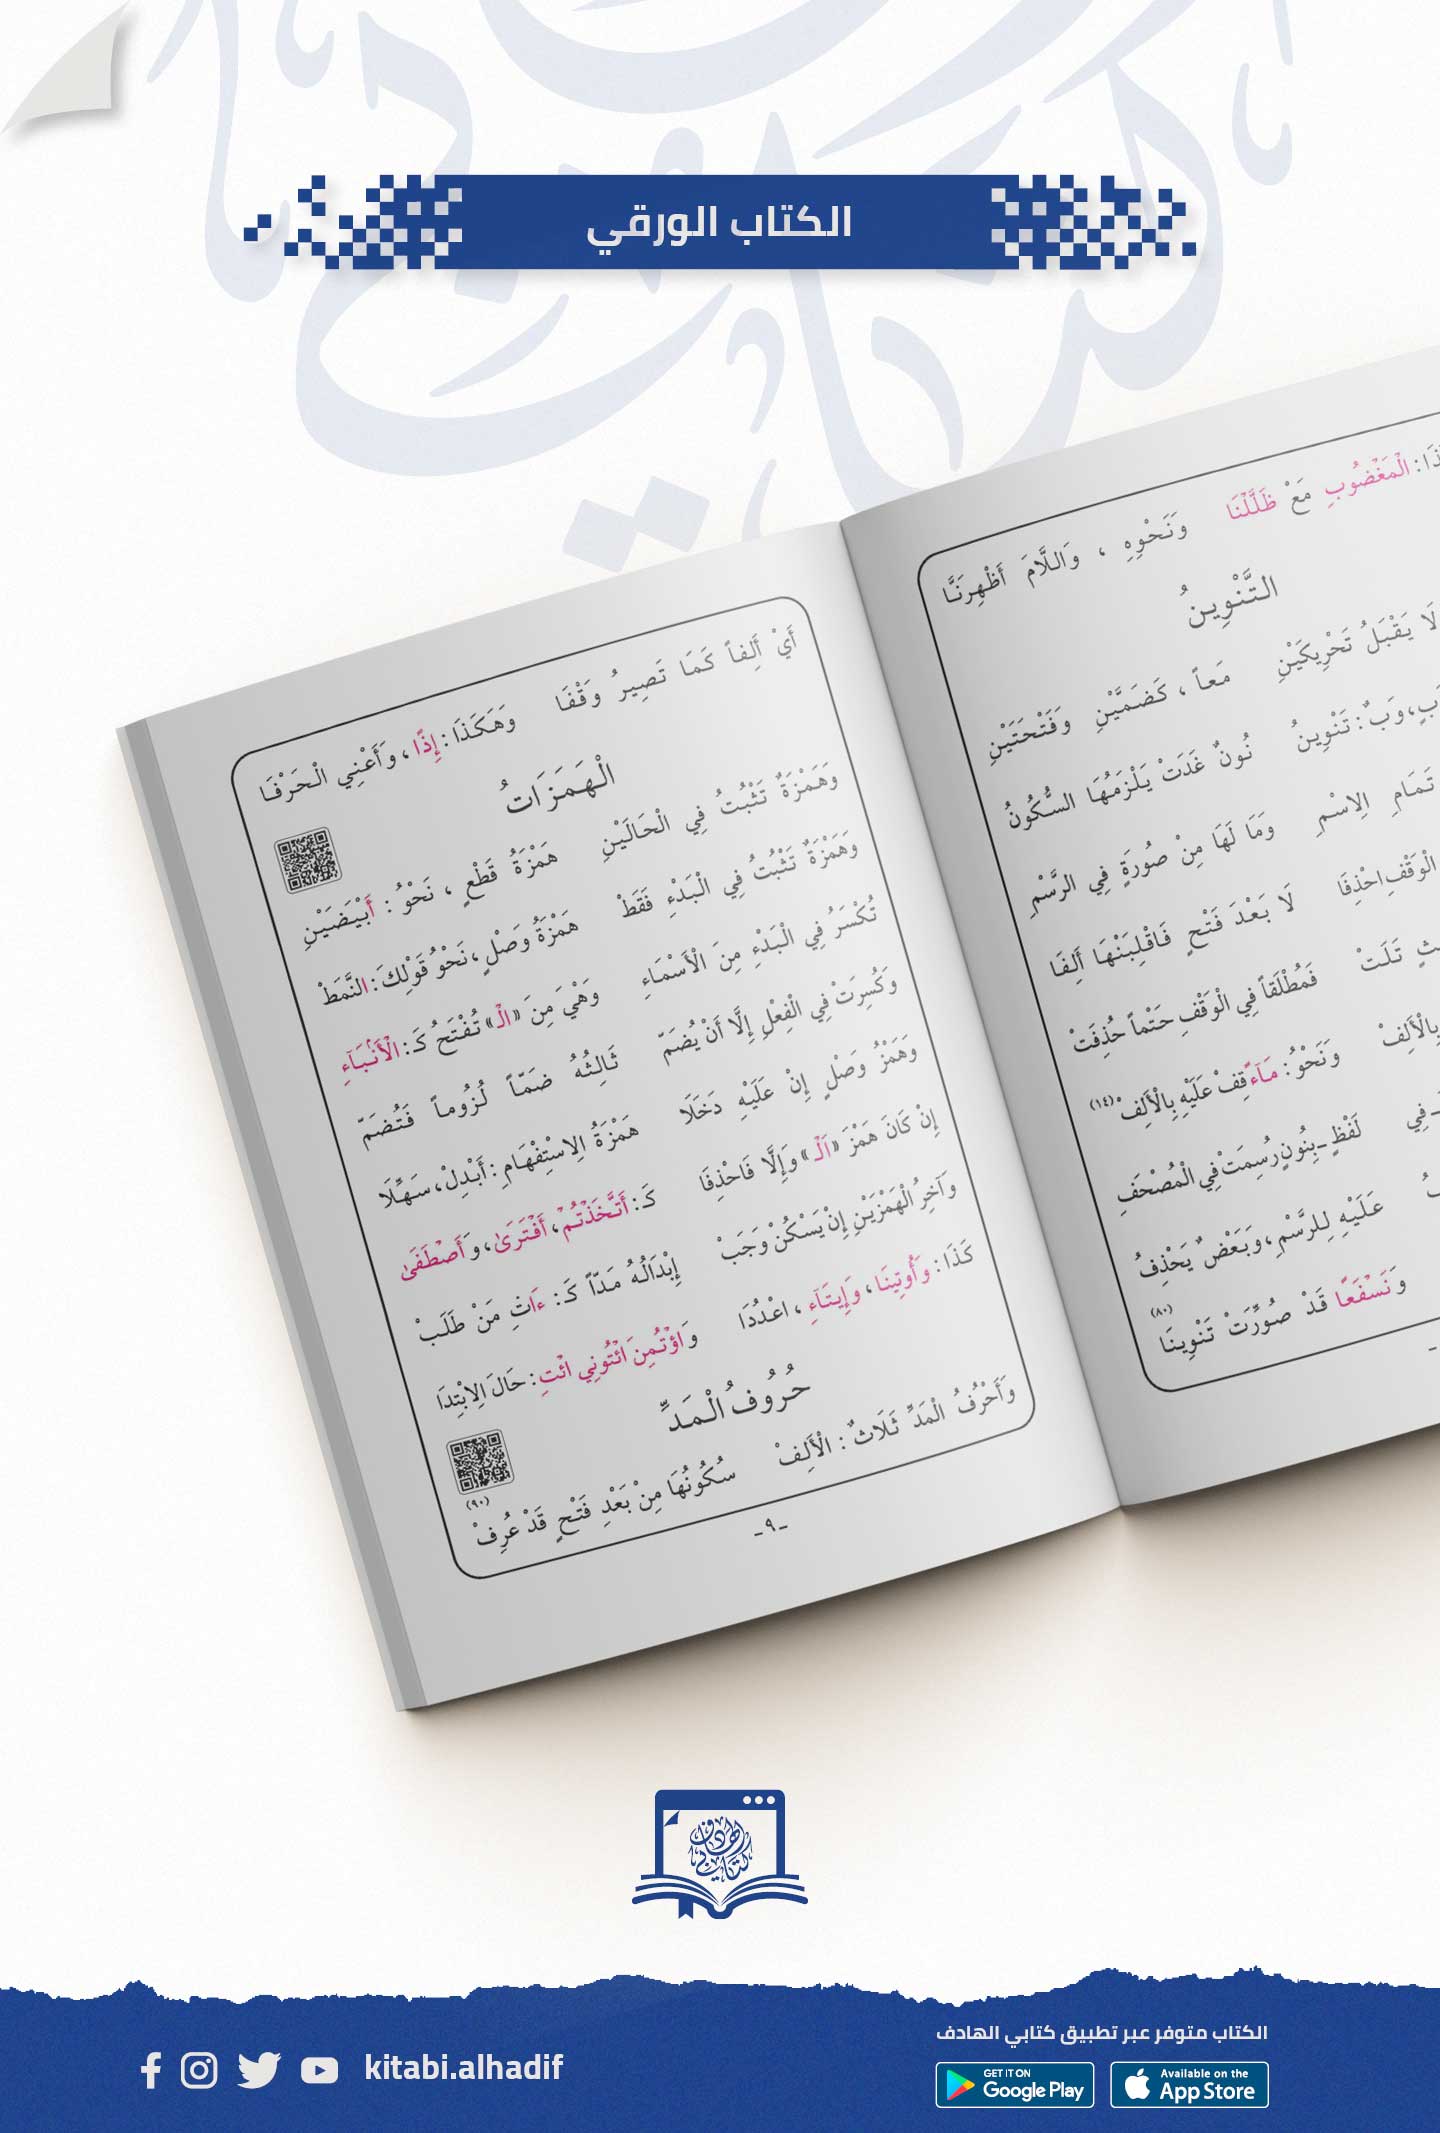 الكتاب الورقي
الْمَغْضُوبِ مَعْ ظَلَّلْنَا وَنَحْوِهِ ، وَاللَّامَ أَظْهِرَنَّا
التَّنْوِينُ
لَا يَقْبَلُ تَحْرِيكَيْنِ مَعاً ، كَضَمَّيْنِ وَفَتْحَتَيْنِ
وَبٌ : تَنْوِينُ نُونٌ غَدَتْ يَلْزَمُهَا السُّكُونُ
تَمَامِ الِاسْمِ وَمَا لَهَا مِنْ صُورَةٍ فِي الرَّسْمِ
الْوَقْفِ احْذِفَا لَا بَعْدَ فَتْحٍ فَاقْلِبَنْهَا أَلِفَا
تَلَتْ فَمُطْلَقاً فِي الْوَقْفِ حَتْماً حُذِفَتْ
بِالْأَلِفْ وَنَحْوُ : مَآءً قِفْ عَلَيْهِ بِالْأَلِفْ (١٤)
فِي لَفْظٍ ـ بِنُونٍ رُسِمَتْ فِي الْمُصْحَفِ
عَلَيْهِ لِلرَّسْمِ ، وَبَعْضٌ يَحْذِفُ
وَنَسْفَعًا قَدْ صُوِّرَتْ تَنْوِينَا (٨٠)
أَيْ أَلِفاً كَمَا تَصِيرُ وَقْفَا وَهَكَذَا : إِذًا ، وَأَعْنِي الْحَرْفَا
الْهَمَزَاتُ
وَهَمْزَةٌ تَثْبُتُ فِي الْحَالَيْنِ هَمْزَةُ قَطْعٍ ، نَحْوُ : أَبْيَضَيْنِ
وَهَمْزَةٌ تَثْبُتُ فِي الْبَدْءِ فَقَطْ هَمْزَةُ وَصْلٍ ، نَحْوُ قَوْلِكَ : النَّمَطْ
تُكْسَرُ فِي الْبَدْءِ مِنَ الْأَسْمَاءِ وَهْيَ مِنَ «الْـ» تُفْتَحُ كَـ : الْأَنْۢبَآءِ
وَكُسِرَتْ فِي الْفِعْلِ إِلَّا أَنْ يُضَمّ ثَالِثُهُ ضَمّاً لُزُوماً فَتُضَمّ
وَهَمْزُ وَصْلٍ إِنْ عَلَيْهِ دَخَلَا هَمْزَةُ الِاسْتِفْهَامِ : أَبْدِلْ ، سَهِّلَا
إِنْ كَانَ هَمْزَ «اَلْـ» وَإِلَّا فَاحْذِفَا كَـ : أَتَّخَذْتُمْ ، أَفْتَرَىٰ ، وَأَصْطَفَى
وَآخِرُ الْهَمْزَيْنِ إِنْ يَسْكُنْ وَجَبْ إِبْدَالُهُ مَدّاً كَـ : ءَاتِ مَنْ طَلَبْ
كَذَا : وَأُوتِينَا ، وَإِيتَآءِ ، اعْدُدَا وَاؤْتُمِنَ ائْتُونِي ائْتِ : حَالَ الِابْتِدَا
حُرُوفُ الْمَدِّ
وَأَحْرُفُ الْمَدِّ ثَلَاثٌ : الْأَلِفْ سُكُونُهَا مِنْ بَعْدِ فَتْحٍ قَدْ عُرِفْ (٩٠)
ـ٩ـ
الكتاب متوفر عبر تطبيق كتابي الهادف
kitabi.alhadif
GET IT ON
Google Play
Available on the
App Store